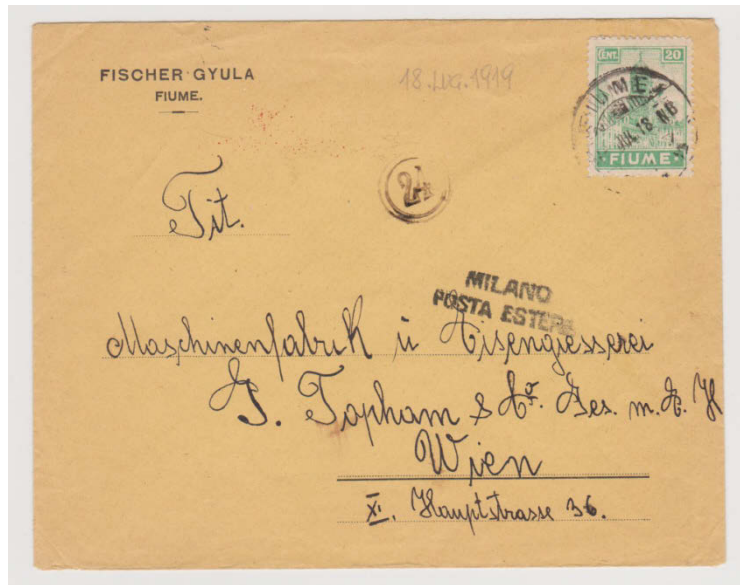 FISCHER GYULA
FIUME.
18.LUG.1919
CENT. 20
FIUME
JUL. 18
FIUME
24
Tit.
MILANO
POSTA ESTERE
Maschinenfabrik ü Eisengiesserei
J. Topham & Co. Ges. m. B. H
Wien
XI. Hauptstrasse 36.